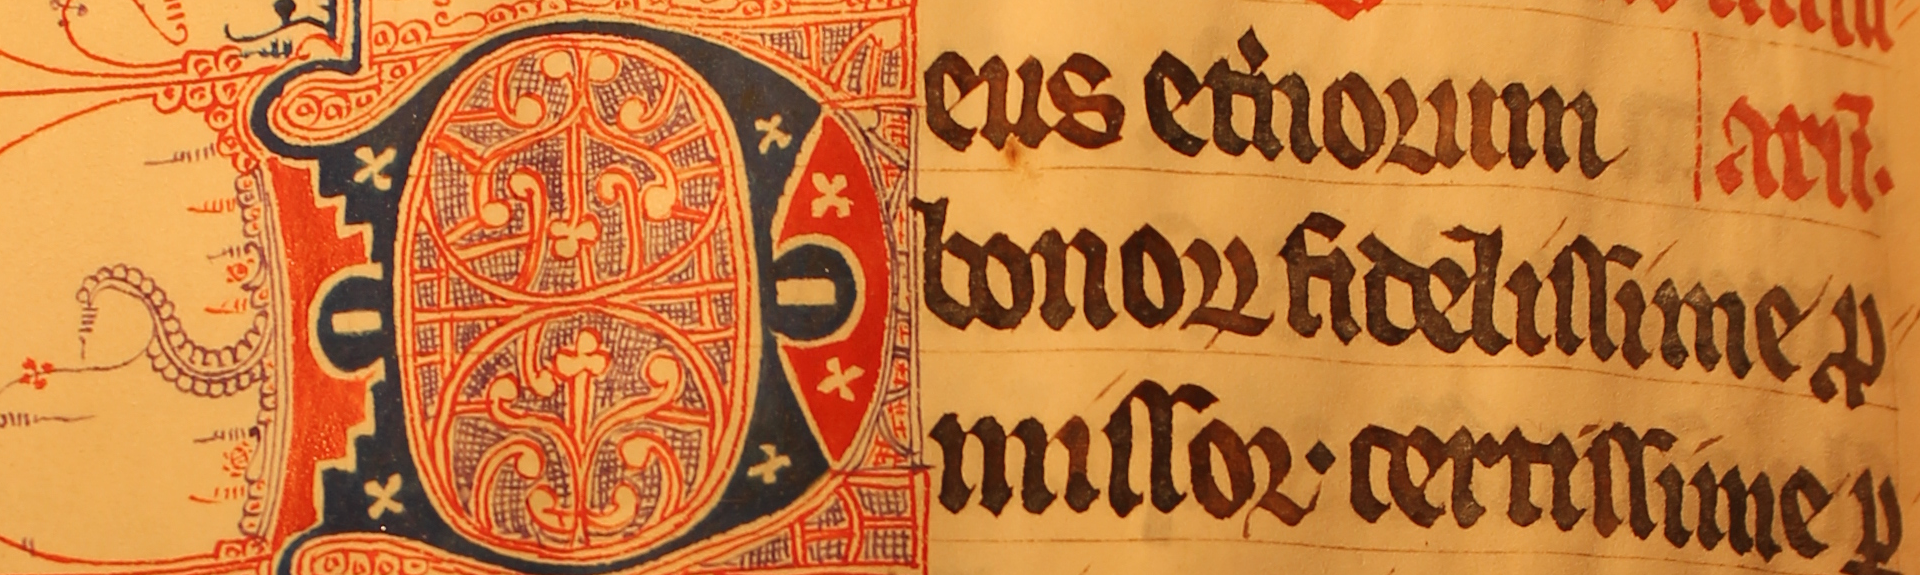 Deus et̾norum arū.
bonoꝝ fidelissime ꝓ
missoꝝ· certissime ꝑ